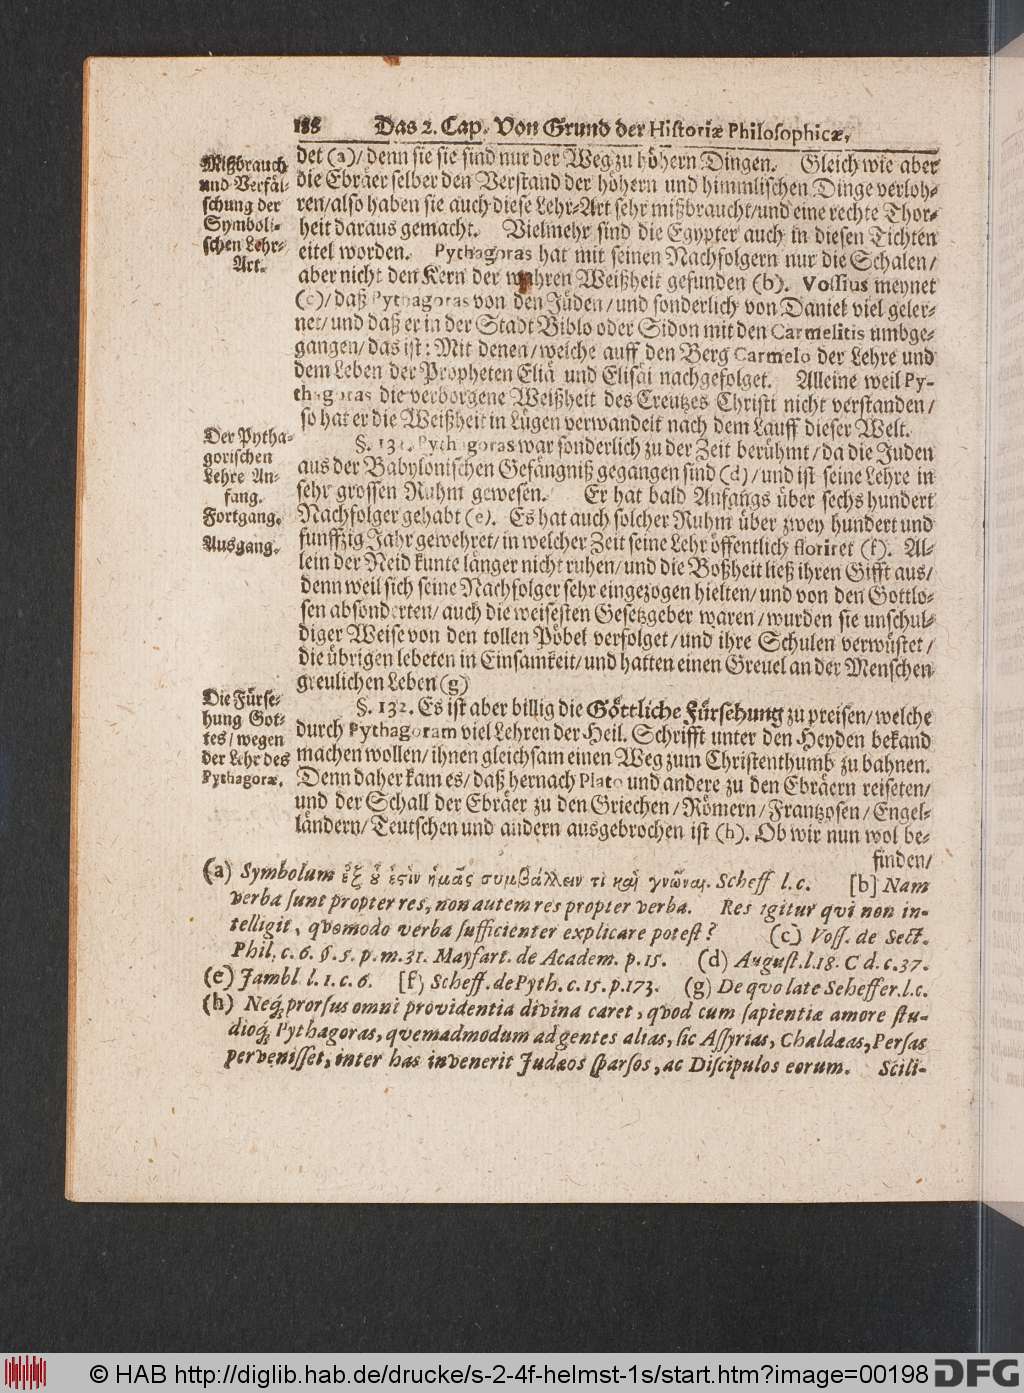 188 Das 2. Cap. Von Grund der Historiæ Philosophicæ,
Mißbrauch
und Verfäl-
schung der
Symboli-
schen Lehr-
Art.
det (a)/ denn sie sie sind nur der Weg zu höhern Dingen. Gleich wie aber
die Ebräer selber den Verstand der höhern und himmlischen Dinge verloh-
ren/also haben sie auch diese Lehr-Art sehr mißbraucht/und eine rechte Thor-
heit daraus gemacht. Vielmehr sind die Egypter auch in diesen Tichten
eitel worden. Pythagoras hat mit seinen Nachfolgern nur die Schalen/
aber nicht den Kern der wahren Weißheit gefunden (b). Vossius meynet
(c)/ daß Pythagoras von den Jüden/und sonderlich von Daniel viel geler-
net/und daß er in der Stadt Biblo oder Sidon mit den Carmelitis umbge-
gangen/das ist: Mit denen/welche auff den Berg Carmelo der Lehre und
dem Leben der Propheten Eliä und Elisäi nachgefolget. Alleine weil Py-
thagoras die verborgene Weißheit des Creutzes Christi nicht verstanden/
so hat er die Weißheit in Lügen verwandelt nach dem Lauff dieser Welt.
Der Pytha-
gorischen
Lehre An-
fang.
Fortgang.
Ausgang.
§. 131. Pythagoras war sonderlich zu der Zeit berühmt/da die Juden
aus der Babylonischen Gefängniß gegangen sind (d)/und ist seine Lehre in
sehr grossen Ruhm gewesen. Er hat bald Anfangs über sechs hundert
Nachfolger gehabt (e). Es hat auch solcher Ruhm über zwey hundert und
funffzig Jahr gewehret/in welcher Zeit seine Lehr öffentlich floriret (f). Al-
lein der Neid kunte länger nicht ruhen/und die Boßheit ließ ihren Gifft aus/
denn weil sich seine Nachfolger sehr eingezogen hielten/und von den Gottlo-
sen absonderten/auch die weisesten Gesetzgeber waren/wurden sie unschul-
diger Weise von den tollen Pöbel verfolget/und ihre Schulen verwüstet/
die übrigen lebeten in Einsamkeit/und hatten einen Greuel an der Menschen
greulichen Leben (g)
Die Fürse-
hung Got-
tes/wegen
der Lehr des
Pythagoræ.
§. 132. Es ist aber billig die Göttliche Fürsehung zu preisen/welche
durch Pythagoram viel Lehren der Heil. Schrifft unter den Heyden bekand
machen wollen/ihnen gleichsam einen Weg zum Christenthumb zu bahnen.
Denn daher kam es/daß hernach Plato und andere zu den Ebräern reiseten/
und der Schall der Ebräer zu den Griechen/Römern/Frantzosen/Engel-
ländern/Teutschen und andern ausgebrochen ist (h). Ob wir nun wol be-
finden/
(a) Symbolum ἐξ οὗ ἐςὶν ἡμᾶς συμβάλλειν τὶ καὶ γνῶναι. Scheff l. c. [b] Nam
verba sunt propter res, non autem res propter verba. Res igitur qvi non in-
telligit, qvomodo verba sufficienter explicare potest? (c) Voss. de Sect.
Phil. c. 6. §. 5. p. m. 31. Mayfart. de Academ. p. 15. (d) August. l. 18. C d. c. 37.
(e) Jambl l. 1. c. 6. [f) Scheff. de Pyth. c. 15. p. 173. (g) De qvo late Scheffer. l. c.
(h) Neq; prorsus omni providentia divina caret, qvod cum sapientiæ amore stu-
dioq; Pythagoras, qvemadmodum ad gentes alias, sic Assyrias, Chaldæas, Persas
pervenisset, inter has invenerit Judæos sparsos, ac Discipulos eorum. Scili-
© HAB http://diglib.hab.de/drucke/s-2-4f-helmst-1s/start.htm?image=00198
DFG